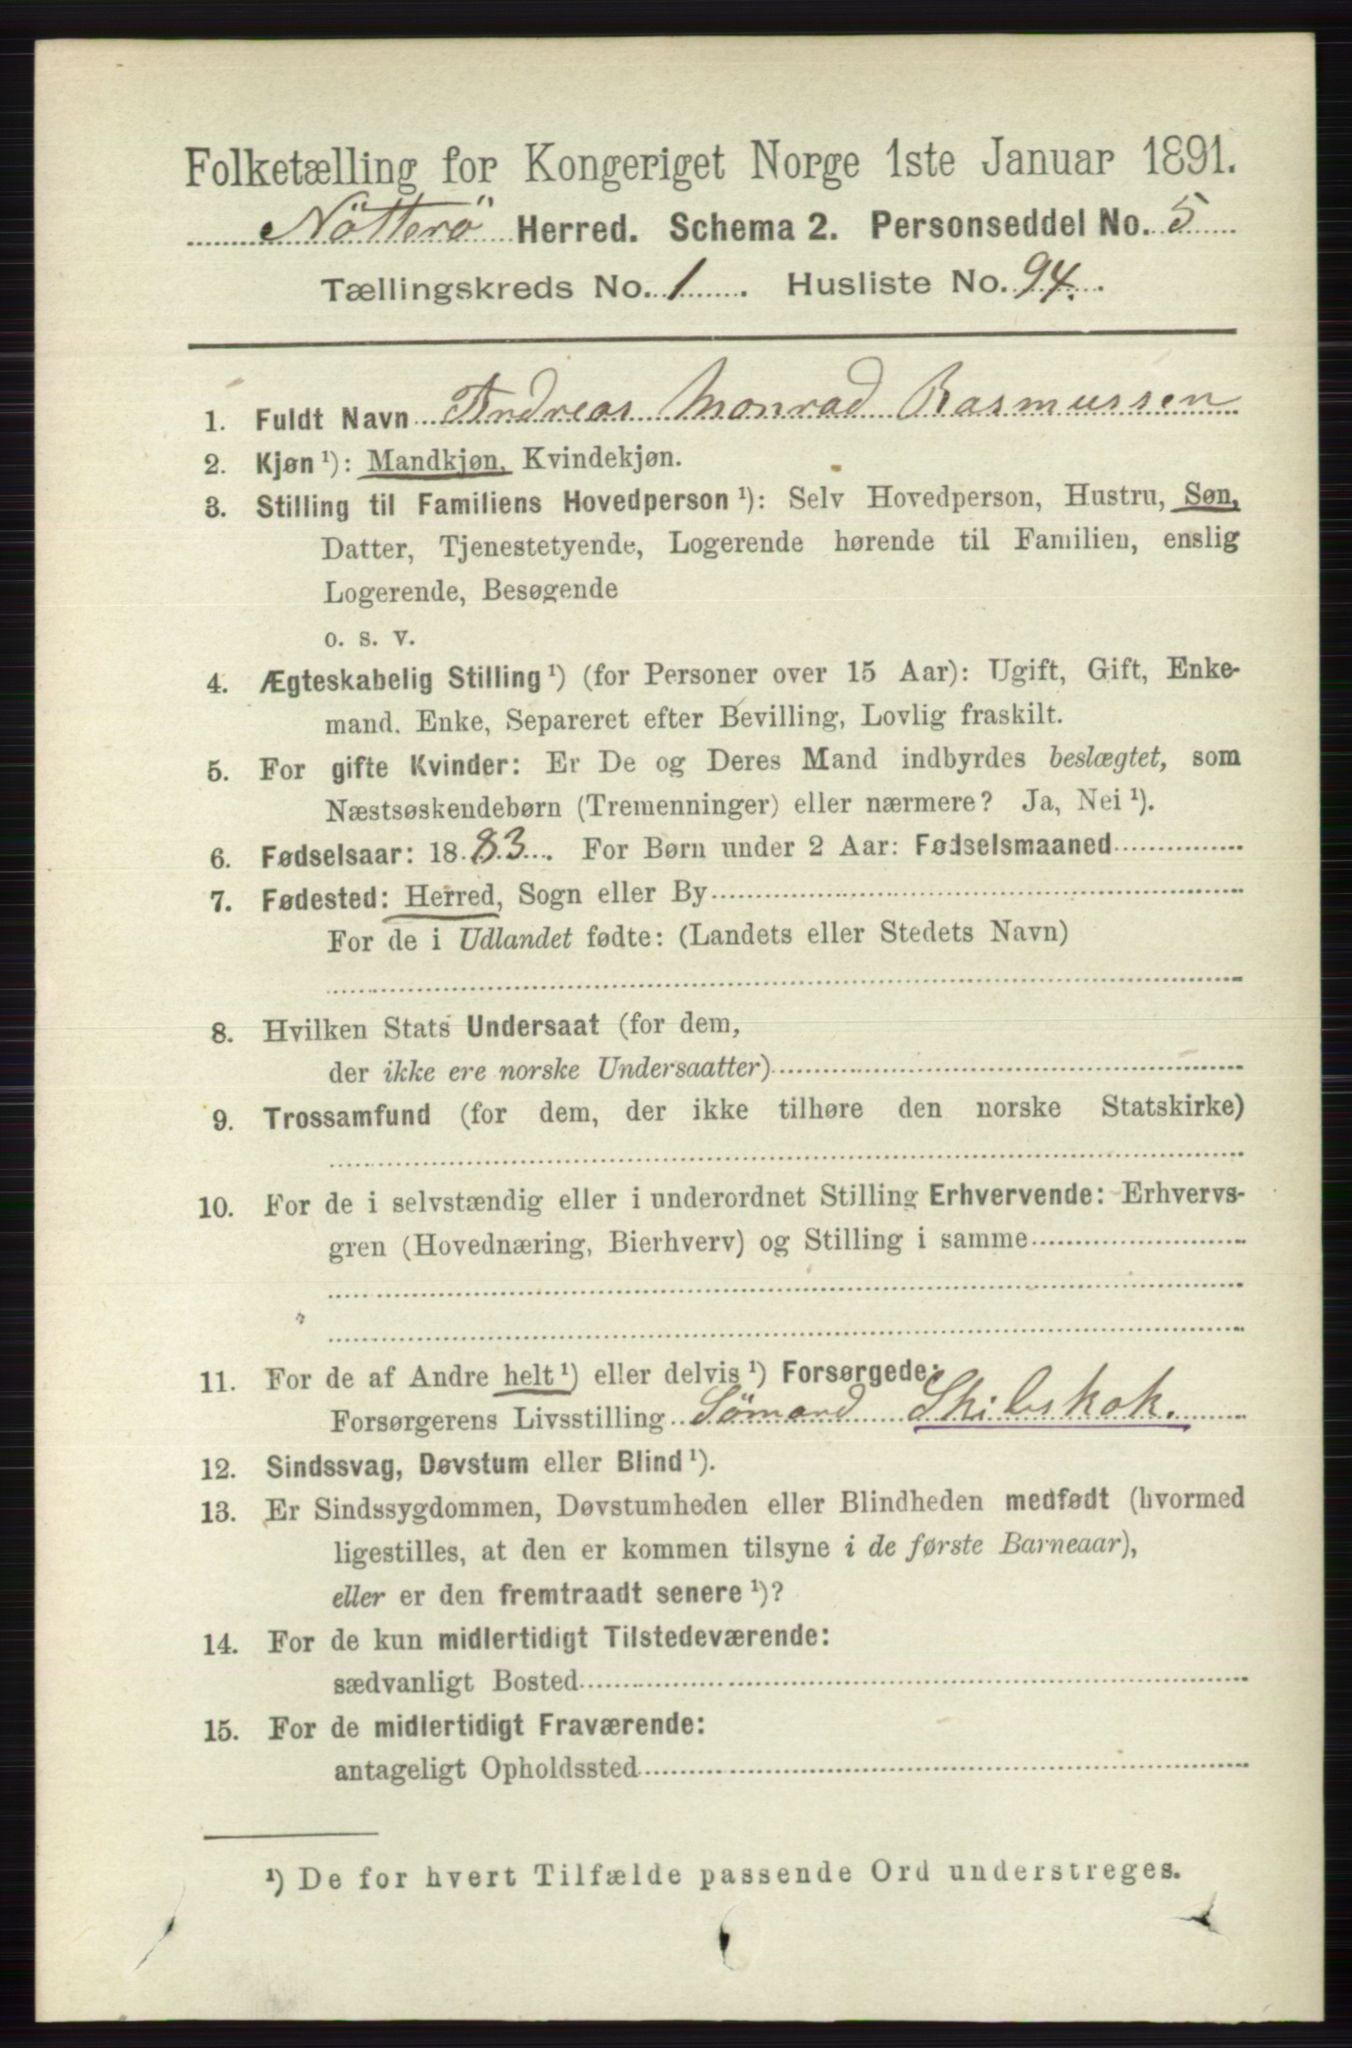 Folketælling for Kongeriget Norge 1ste Januar 1891.
Nötterö Herred. Schema 2. Personseddel No. 5
Tællingskreds No. 1. Husliste No. 94.
1. Fuldt Navn Andreas Monrad Rasmussen
2. Kjøn ¹): Mandkjøn, Kvindekjøn.
3. Stilling til Familiens Hovedperson ¹): Selv Hovedperson, Hustru, Søn,
Datter, Tjenestetyende, Logerende hørende til Familien, enslig
Logerende, Besøgende
o. s. v.
4. Ægteskabelig Stilling ¹) (for Personer over 15 Aar): Ugift, Gift, Enke-
mand. Enke, Separeret efter Bevilling, Lovlig fraskilt.
5. For gifte Kvinder: Er De og Deres Mand indbyrdes beslægtet, som
Næstsøskendebørn (Tremenninger) eller nærmere? Ja, Nei ¹).
6. Fødselsaar: 1883. For Børn under 2 Aar: Fødselsmaaned
7. Fødested: Herred, Sogn eller By
For de i Udlandet fødte: (Landets eller Stedets Navn)
8. Hvilken Stats Undersaat (for dem,
der ikke ere norske Undersaatter)
9. Trossamfund (for dem, der ikke tilhøre den norske Statskirke)
10. For de i selvstændig eller i underordnet Stilling Erhvervende: Erhvervs-
gren (Hovednæring, Bierhverv) og Stilling i samme
11. For de af Andre helt ¹) eller delvis ¹) Forsørgede:
Forsørgerens Livsstilling Sömand Skibskok.
12. Sindssvag, Døvstum eller Blind ¹).
13. Er Sindssygdommen, Døvstumheden eller Blindheden medfødt (hvormed
ligestilles, at den er kommen tilsyne i de første Barneaar),
eller er den fremtraadt senere ¹)?
14. For de kun midlertidigt Tilstedeværende:
sædvanligt Bosted
15. For de midlertidigt Fraværende:
antageligt Opholdssted
¹) De for hvert Tilfælde passende Ord understreges.